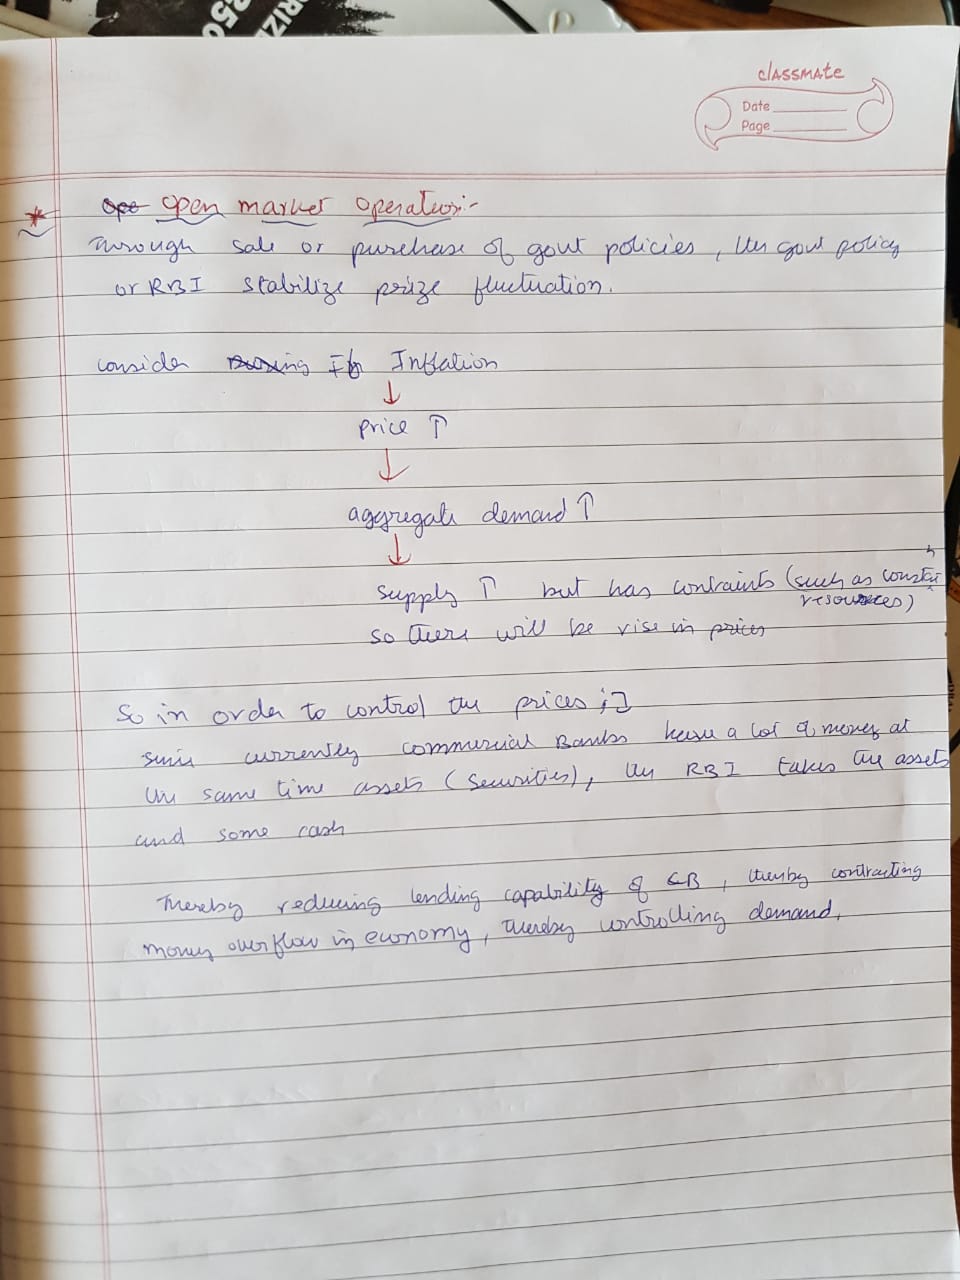 PRIZE
250
classmate
Date
Page
Ope Open market Operation:-
Through sale or purchase of govt policies, the govt policy
or RBI stabilize prize fluctuation.
consider If Inflation
↓
price ↑
↓
aggregate demand ↑
↓
supply ↑ but has contraints (such as
resources)
so there will be rise in prices
So in order to control the prices ;]
since currently commercial Banks have a lot of money at
the same time assets (securities), the RBI takes the assets
and some cash
Thereby reducing lending capability of CB, thereby contracting
money overflow in economy, thereby controlling demand.